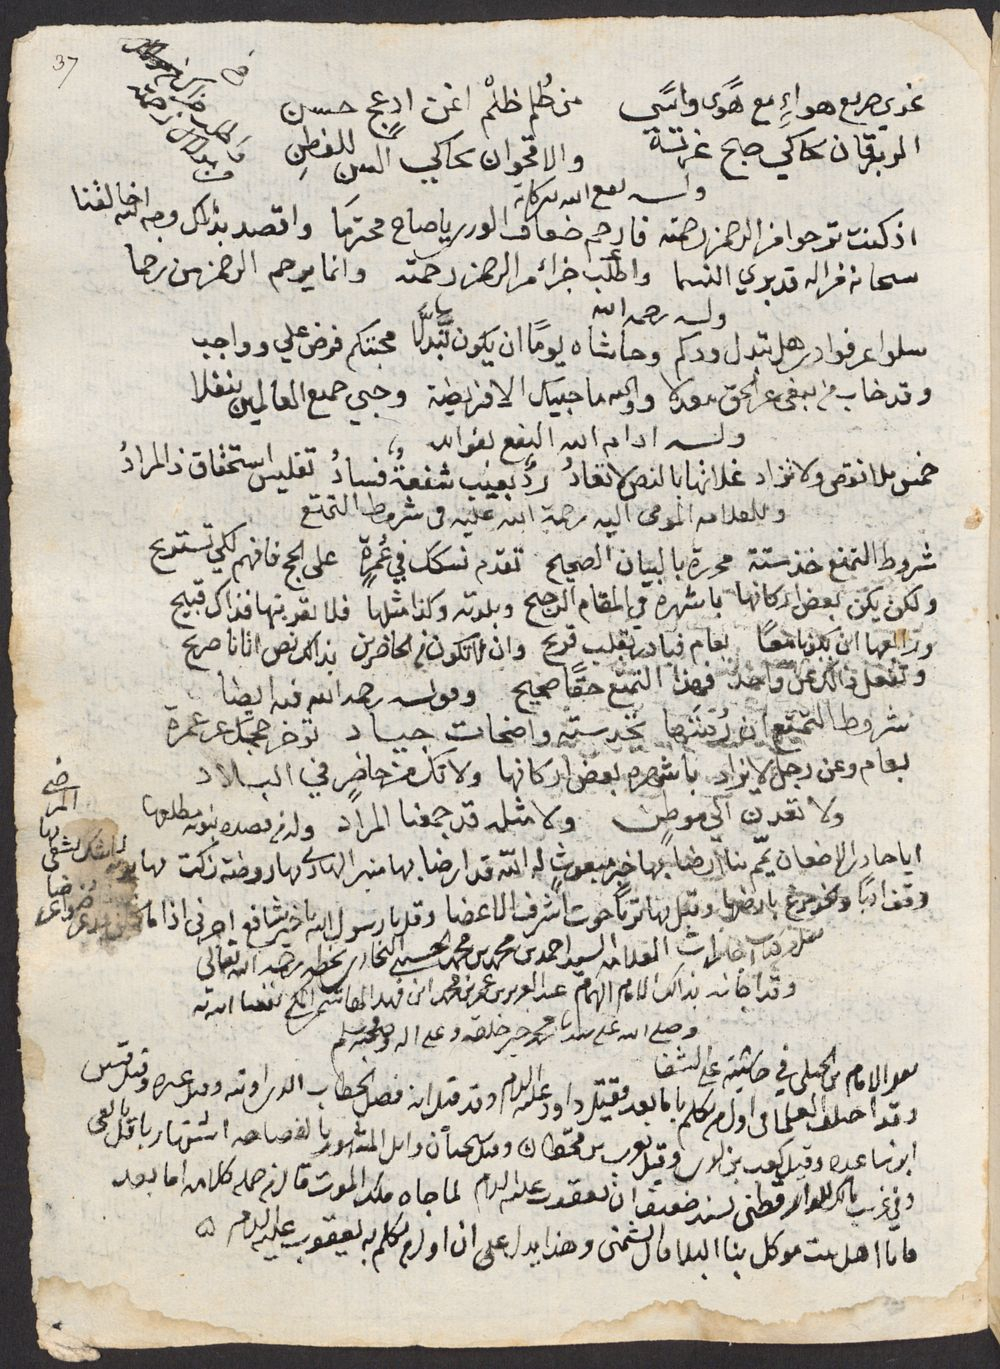 37
غدى صريع هواء مع هوى واسى من ظلم ظلم اغن ادعج حسن
الزبرقان يحاكي صبح غرته والاقحوان يحاكي السن للفطن
وله نفع الله ببركاته
اذ كنت ترجوا من الرحمن رحمته فارحم ضعاف الورى يا صاح محترما واقصد بذلك وجه الله خالقنا
سبحانه من اله قد برى النسما واطلب جزا من الرحمن رحمته وانما يرحم الرحمن من رحما
وله رحمه الله
سلوا عن فوادي هل تبدل ودكم وحاشاه يوما ان يكون تبدلا محبتكم فرض علي وواجب
وقد خاب من يبغي عن الحق معدلا ووالله ما حبيك الا فريضة وحبي جميع العالمين تنفلا
وله ادام الله النفع بفوايده
خمس بلا نقص ولا تزاد غلاتها بالنص لا تعاد رد بعيب شفعة فساد تفليس استحقاق ذا المراد
وللعلامه المومى اليه رحمة الله عليه في شروط التمتع
شروط التمتع خذ ستة محررة بالبيان الصحيح تقدم نسكك في عمرة على الحج فافهم لكي تستريح
ولكن يكن بعض اركانها باشهره في المقام الرجيح وبلدته وكذا مثلها فلا تقربنها فذاك قبيح
ورابعها ان يكونا معا بعام فبادر بقلب قريح وان لا تكون من الحاضرين بذلك نص اتانا صريح
وتفعل ذلك عن واحد فهذا التمتع حقا صحيح وقوله رحمه الله فيه ايضا
شروط التمتع ان رمتها فخذ ستة واضحات جياد توخر حجك عن عمرة
بعام وعن رجل لا يزاد باشهره بعض اركانها ولا تك من حاضر في البلاد
ولا تعدن الى موطن ولا مثله قد جمعنا المراد وله من قصده نبويه مطلعها
ايا حادي الاضعان يمم بنا ارضا بها خير مبعوث له الله قد ارضا بها منبر الهادي بها روضة زكت
وقف ادبا بارضها وقل يا رسول الله يا خير شافع اجرني اذا ما
العلامه السيد احمد بن محمد بن محمد الحسيني البخاري بخطه رحمه الله تعالى
وقد اجازه بذلك الامام الهمام عبد العزيز بن عمر بن محمد ابن فهد الهاشمي
وصلى الله على سيدنا محمد خير خلقه وعلى اله وصحبه وسلم
الامام في حاشيته على الشفا
وقد اختلف العلما في اول من تكلم باما بعد فقيل داود عليه السلام وقد قيل انه فصل الخطاب الذي اوتيه وقيل قس
ابن ساعده وقيل كعب بن لوي وقيل يعرب بن قحطان وقيل سحبان وايل المشهور بالفصاحه
وفي غريب مالك للدارقطني بسند ضعيف ان يعقوب عليه السلام لما جاه ملك الموت قال من جمله كلامه اما بعد
فانا اهل بيت موكل بنا البلا قال الشمني وهذا يدل على ان اول من تكلم به يعقوب عليه السلام